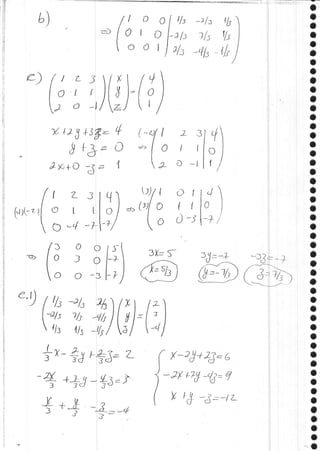 b)
=> ( 1 0 0 | 1/3 -2/3 1/3 )
( 0 1 0 | -2/3 7/3 1/3 )
( 0 0 1 | 2/3 -4/3 -1/3 )
c) ( 1 2 3 ) ( x ) ( 4 )
( 0 1 1 ) ( y ) = ( 0 )
( 2 0 -1 ) ( z ) ( 1 )
x+2y+3z=4
y+z=0
2x+0-z=1
( 1 2 3 | 4 )
( 0 1 1 | 0 )
( 2 0 -1 | 1 )
( 1 2 3 | 4 )
( 0 1 1 | 0 )
( 0 -4 -7 | -7 )
=> (3) ( 1 0 1 | 4 )
(3) ( 0 1 1 | 0 )
( 0 0 -3 | -7 )
=> ( 3 0 0 | 5 )
( 0 3 0 | -7 )
( 0 0 -3 | -7 )
3x=5 3y=-7 -3z=-7
x=5/3 y=-7/3 z=7/3
c.1)
( 1/3 -2/3 2/3 ) ( x ) ( 2 )
( -2/3 7/3 -4/3 ) ( y ) = ( 3 )
( 1/3 1/3 -1/3 ) ( z ) ( -4 )
1/3 x - 2/3 y + 2/3 z = 2
-2x/3 + 7/3 y - 4/3 z = 3
x/3 + y/3 - z/3 = -4
x-2y+2z=6
-2x+7y-4z=9
x+y-z=-12